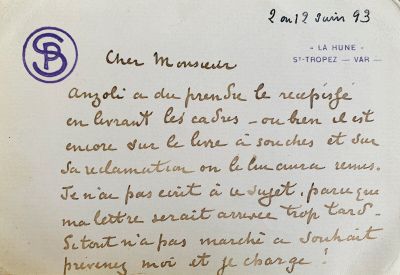 2 ou 12 Juin 93
SPB
" LA HUNE "
ST-TROPEZ — VAR —
Cher Monsieur
Angoli a du prendre le recepissé
en livrant les cadres – ou bien il est
encore sur le livre à souches et sur
sa reclamation on le lui aura remis.
Je n'ai pas ecrit à ce sujet, parceque
ma lettre serait arrivée trop tard.
Si tout n'a pas marché a souhait
prévenez moi et je charge !